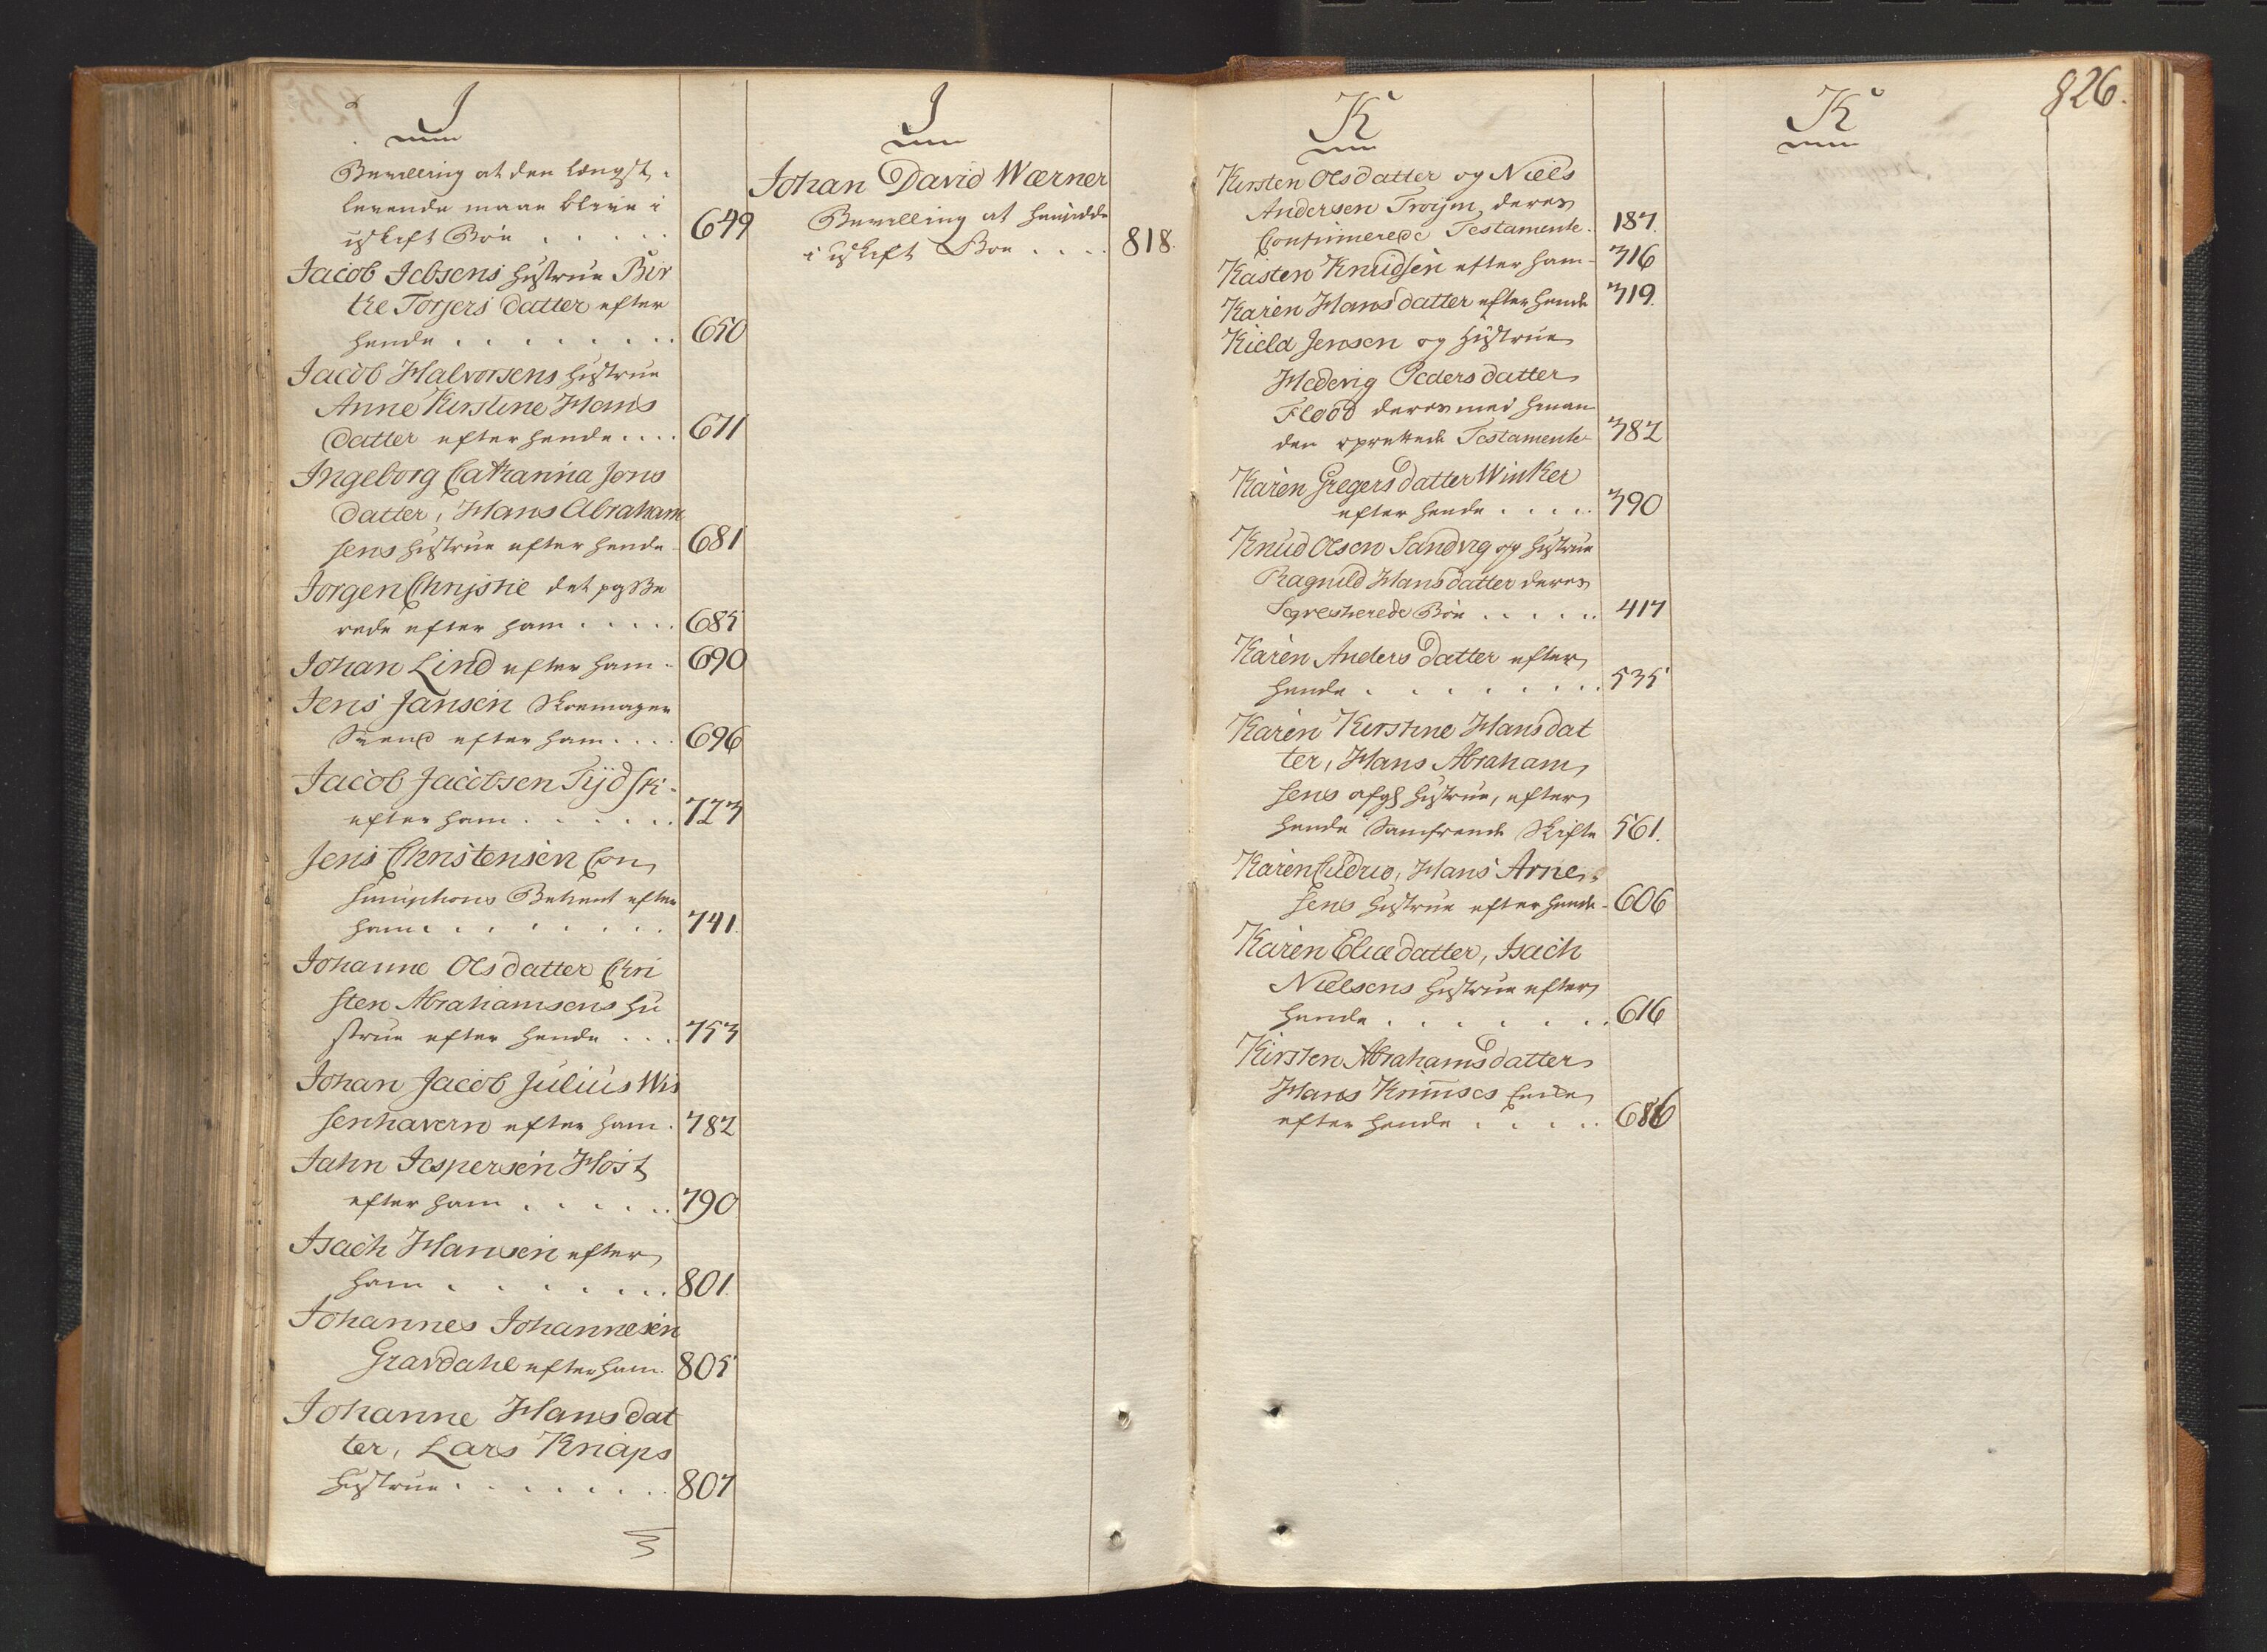 J
Bevilling at den længst
levende maae blive i
uskift Boe . . . . . 649
Jacob Jebsens Hustrue Bir
the Torjers datter efter
hende . . . . . . . . 650
Jacob Halvorsens Hustrue
Anne Kirstine Hans
datter efter hende . . . . 671
Ingeborg Catharina Jons
datter, Hans Abraham
sens Hustrue efter hende 681
Jorgen Christie det passe
rede efter ham . . . . . 685
Johan Lind efter ham . 690
Jens Jansen Skoemager
Svend efter ham . . . . 696
Jacob Jacobsen Tydsk
efter ham . . . . . . 723
Jens Christensen Con
sumptions Betient efter
ham . . . . . . . . 741.
Johanne Olsdatter Chri
sten Abrahamsens Hu
strue efter hende . . . 753
Johan Jacob Julius Wis
senhavern efter ham . 782
Jahn Jespersen Høst
efter ham . . . . . . 790
Isach Hansen efter
ham . . . . . . . 801.
Johannes Johannesen
Gravdahl efter ham . 805
Johanne Hans dat
ter, Lars Knaps
Hustrue . . . . . . . 807
J
Johan David Wærner
Bevilling at hensidde
i uskift Boe . . . . 818.
K
Kirsten Olsdatter og Niels
Andersen Troijm, deres
Confirmerede Testamente . 187.
Kasten Knudsen efter ham 316
Karen Hans datter efter hende 319.
Kield Jensen og Hustrue
Hedevig Peders datter
Flood deres med hinan
den oprettede Testamente 382
Karen Gregers datter Winker
efter hende . . . . . 390
Knud Olsen Sandvig og Hustrue
Ragnild Hans datter deres
Seqvestrerede Boe . . . . . 417
Karen Anders datter efter
hende . . . . . . . . 535
Karen Kirstine Hans dat
ter, Hans Abraham
sens afg. Hustrue, efter
hende Samfrende Skifte 561.
Karen, Hans Arne
sens Hustrue efter hende 606
Karen Eliædatter, Isach
Nielsens Hustrue efter
hende . . . . . . . 616
Kirsten Abrahams datter
Hans Krimses Encke
efter hende . . . . . 686
K
826.